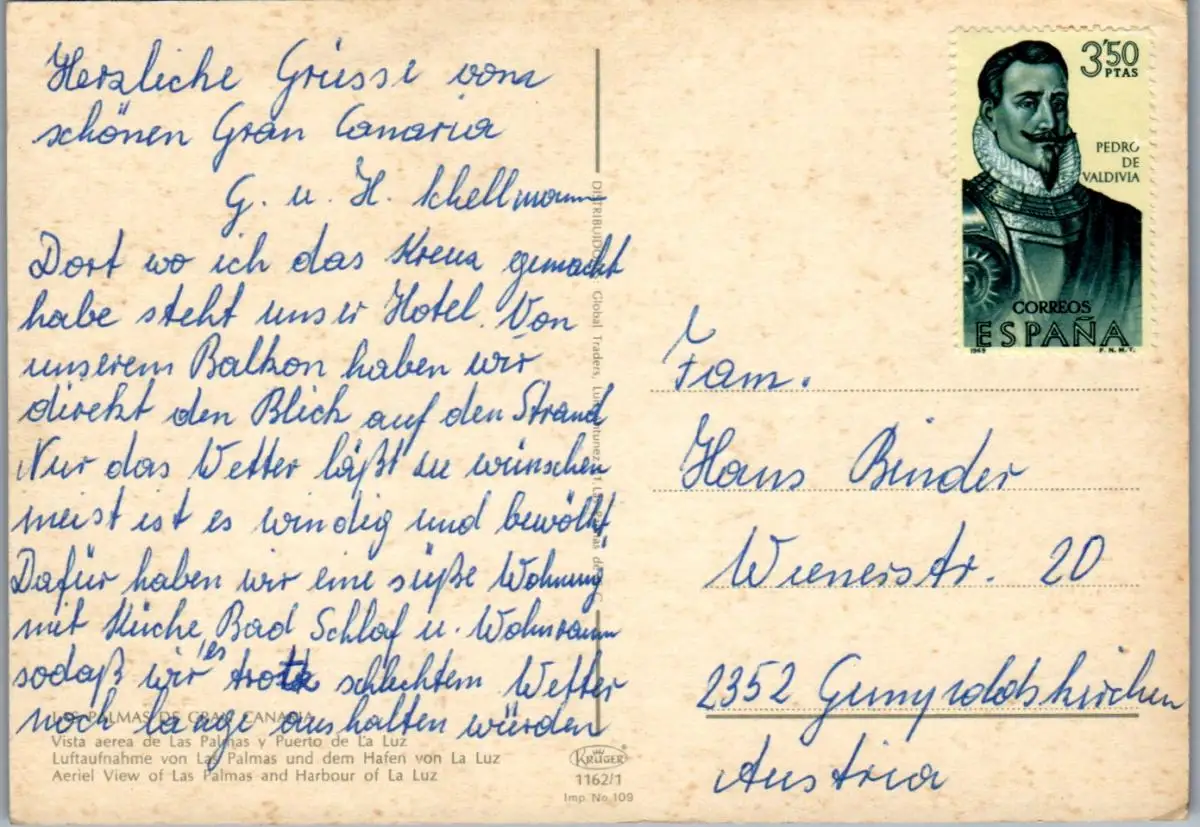 Herzliche Grüsse vom
schönen Gran Canaria
G. u. H. Schellmann
Dort wo ich das Kreuz gemacht
habe steht unser Hotel. Von
unserem Balkon haben wir
direkt den Blick auf den Strand
Nur das Wetter läßt zu wünschen
meist ist es windig und bewölkt.
Dafür haben wir eine süße Wohnung
mit Küche, Bad Schlaf u. Wohnraum
sodaß wir es trotz schlechtem Wetter
noch lange aushalten würden
LAS PALMAS DE GRAN CANARIA
Vista aerea de Las Palmas y Puerto de La Luz
Luftaufnahme von Las Palmas und dem Hafen von La Luz
Aeriel View of Las Palmas and Harbour of La Luz
KRÜGER
1162/1
Imp. No 109
Global Traders,
3'50
PTAS
PEDRO
DE
VALDIVIA
CORREOS
ESPAÑA
F. N. M. T.
Fam.
Hans Binder
Wienerstr. 20
2352 Gumpoldskirchen
Austria